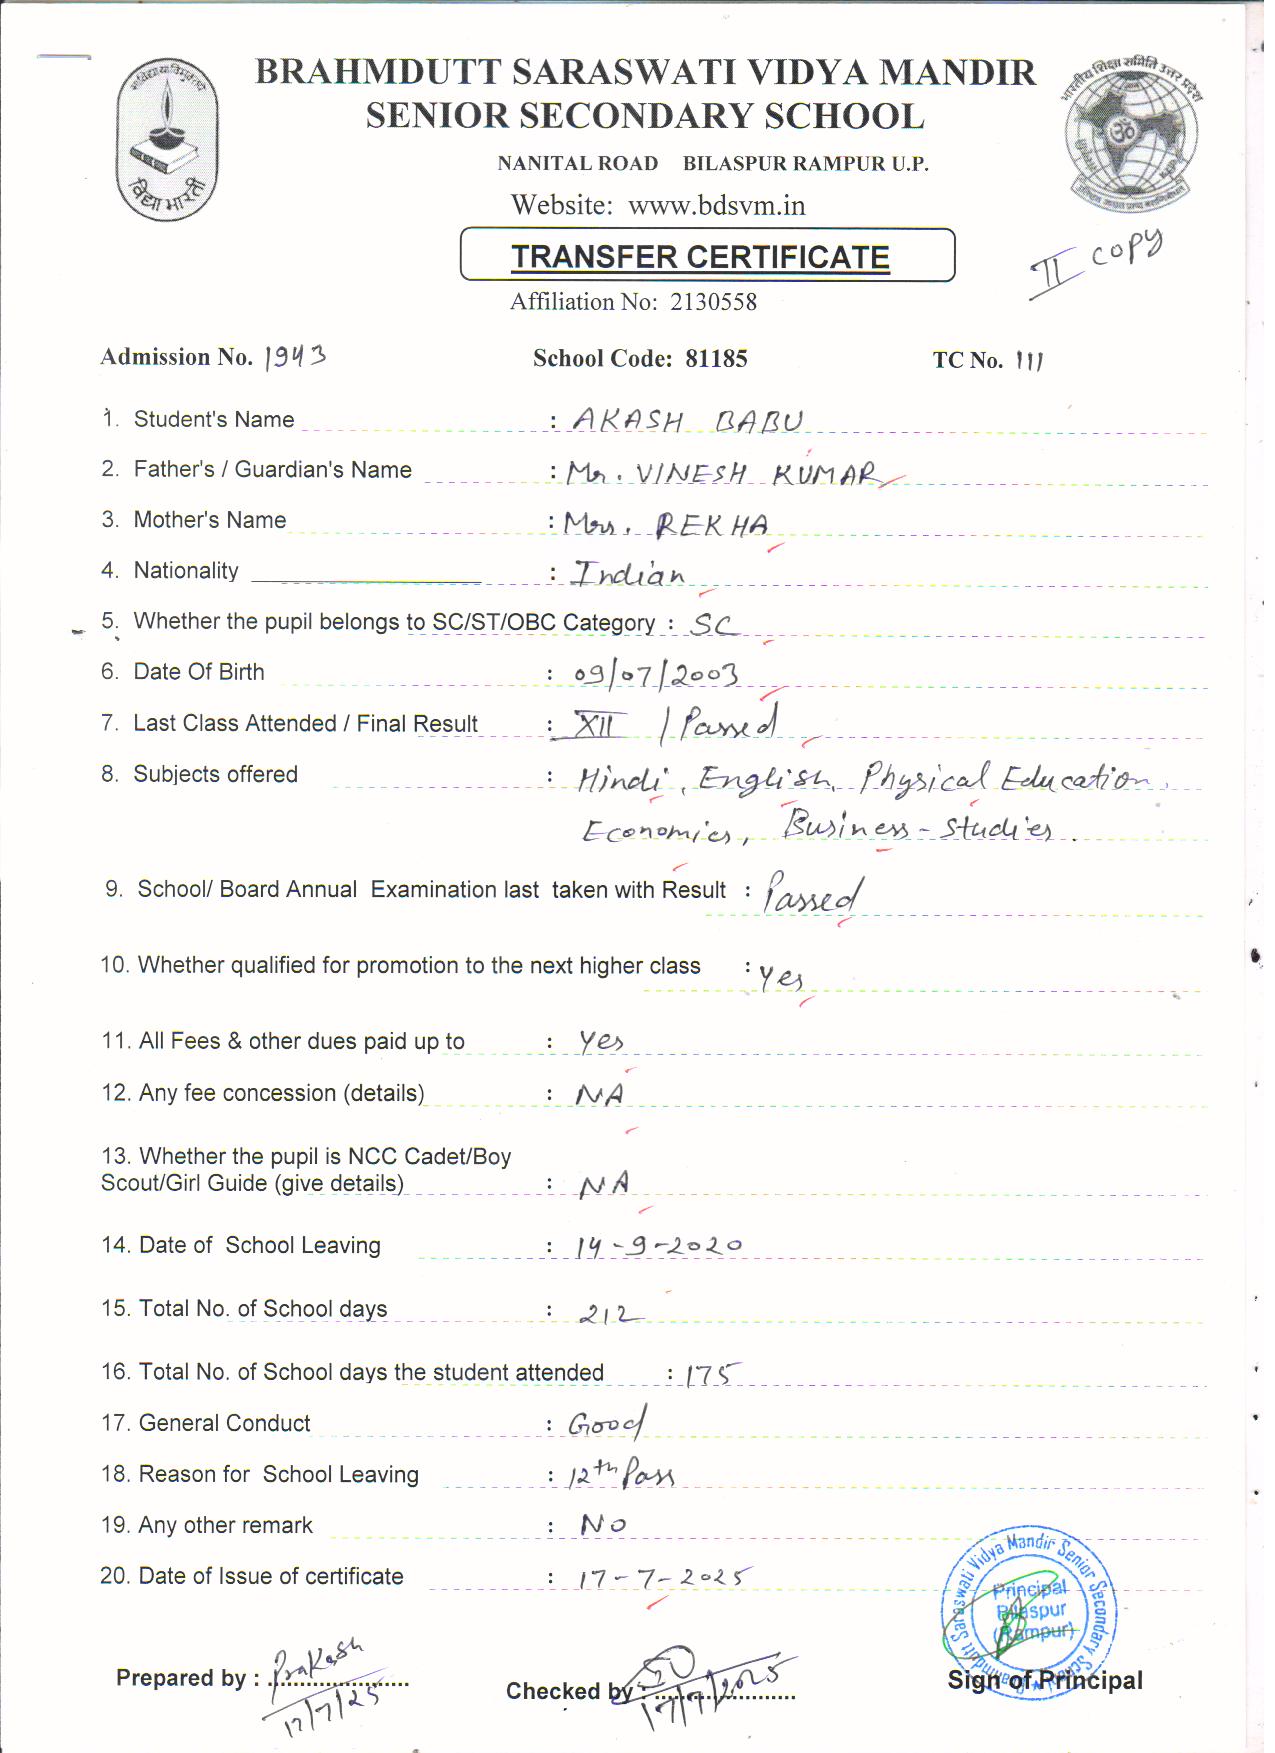 BRAHMDUTT SARASWATI VIDYA MANDIR
SENIOR SECONDARY SCHOOL
NANITAL ROAD BILASPUR RAMPUR U.P.
Website: www.bdsvm.in
विद्या भारती
भारतीय शिक्षा समिति उत्तर प्रदेश
TRANSFER CERTIFICATE
II copy
Affiliation No: 2130558
Admission No. 1943 School Code: 81185 TC No. 111
1. Student's Name : AKASH BABU
2. Father's / Guardian's Name : Mr. VINESH KUMAR
3. Mother's Name : Mrs. REKHA
4. Nationality : Indian
5. Whether the pupil belongs to SC/ST/OBC Category : SC
6. Date Of Birth : 09/07/2003
7. Last Class Attended / Final Result : XII / Passed
8. Subjects offered : Hindi, English, Physical Education,
Economics, Business-Studies.
9. School/ Board Annual Examination last taken with Result : Passed
10. Whether qualified for promotion to the next higher class : Yes
11. All Fees & other dues paid up to : Yes
12. Any fee concession (details) : NA
13. Whether the pupil is NCC Cadet/Boy
Scout/Girl Guide (give details) : NA
14. Date of School Leaving : 14-9-2020
15. Total No. of School days : 212
16. Total No. of School days the student attended : 175
17. General Conduct : Good
18. Reason for School Leaving : 12th Pass
19. Any other remark : No
20. Date of Issue of certificate : 17-7-2025
Brahmdutt Saraswati Vidya Mandir Senior Secondary School
Principal
Bilaspur
(Rampur)
Prepared by : Prakash
17/7/25
Checked by :
17/7/2025
Sign of Principal